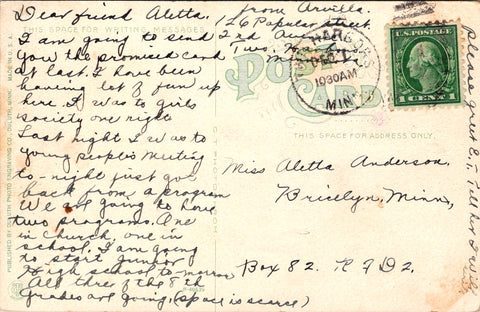 Dear friend Aletta.
I am going to send
you the promised card
at last. I have been
having lot of fun up
here. I was to girls
society one night
Last night I was to
young people's meeting
to-night first got
back from a program
We are going to have
two programs. One
in church, one in
school. I am going
to start Junior
High school to-morrow
All three of the 8th
grades are going, (space is scarce)
from Arvilla.
126 Popular street.
2nd Ave
Two
THIS SPACE FOR WRITING MESSAGES
POST
CARD
THIS SPACE FOR ADDRESS ONLY.
HARBORS
DEC
1030AM
MINN
U.S.POSTAGE
1 CENT 1
Miss Aletta Anderson.
Bricelyn, Minn,
Box 82. R F D 2.
Please greet E. T. Tell her I will
MADE IN U.S.A.
PUBLISHED BY DULUTH PHOTO ENGRAVING CO., DULUTH, MINN.